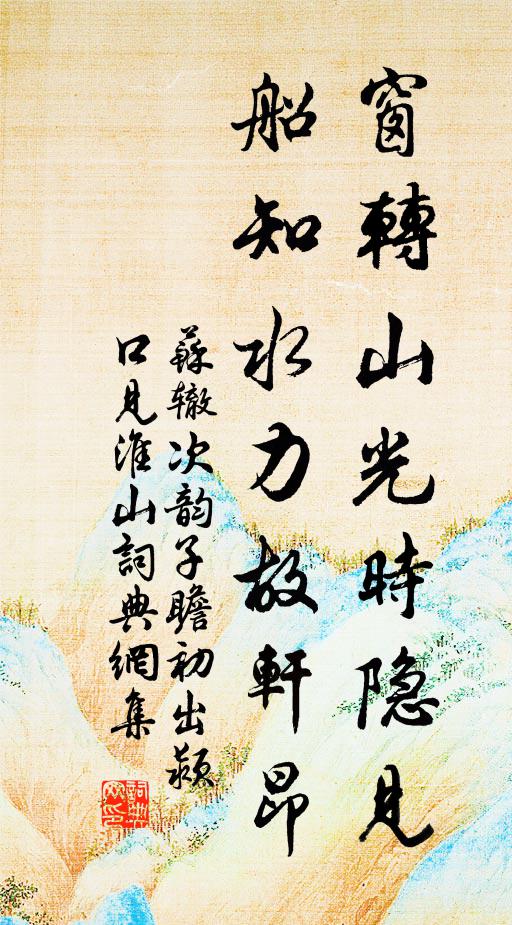 窗轉山光時隐見
船知水力故軒昂
蘇辙次韵子瞻初出颍
口見淮山詞典網集